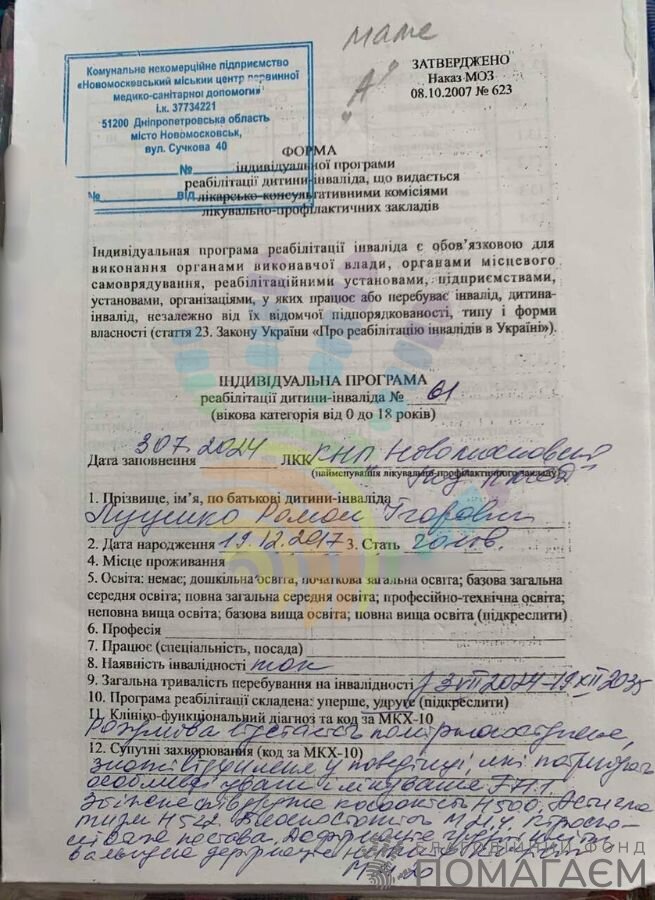 маме
"А"
ЗАТВЕРДЖЕНО
Наказ МОЗ
08.10.2007 № 623
Комунальне некомерційне підприємство
«Новомосковський міський центр первинної
медико-санітарної допомоги»
і.к. 37734221
51200 Дніпропетровська область
місто Новомосковськ,
вул. Сучкова 40
№
№ від
ФОРМА
індивідуальної програми
реабілітації дитини-інваліда, що видається
лікарсько-консультативними комісіями
лікувально-профілактичних закладів
Індивідуальная програма реабілітації інваліда є обов'язковою для
виконання органами виконавчої влади, органами місцевого
самоврядування, реабілітаційними установами, підприємствами,
установами, організаціями, у яких працює або перебуває інвалід, дитина-
інвалід, незалежно від їх відомчої підпорядкованості, типу і форми
власності (стаття 23. Закону України «Про реабілітацію інвалідів в Україні»).
ІНДИВІДУАЛЬНА ПРОГРАМА
реабілітації дитини-інваліда № 61
(вікова категорія від 0 до 18 років)
Дата заповнення 3 07. 2024 ЛКК КНП Новомосковський
(найменування лікувально-профілактичного закладу)
1. Прізвище, ім'я, по батькові дитини-інваліда
Луценко Роман Ігорович
2. Дата народження 19.12.2017 3. Стать чолов.
4. Місце проживання
5. Освіта: немає; дошкільна освіта, початкова загальна освіта; базова загальна
середня освіта; повна загальна середня освіта; професійно-технічна освіта;
неповна вища освіта; базова вища освіта; повна вища освіта (підкреслити)
6. Професія
7. Працює (спеціальність, посада)
8. Наявність інвалідності так
9. Загальна тривалість перебування на інвалідності з 3 VII 2024-19 XII 2035
10. Програма реабілітації складена: уперше, удруге (підкреслити)
11. Клініко-функціональний діагноз та код за МКХ-10
Розумова відсталість помірна
12. Супутні захворювання (код за МКХ-10)
у поведінці, які потребують
особливої уваги і лікування F71.1
косоокість H50.0, Астигма
тизм H52.2
постава, Деформація грудної
деформація
БЛАГОДІЙНИЙ ФОНД
ПОМАГАЄМ